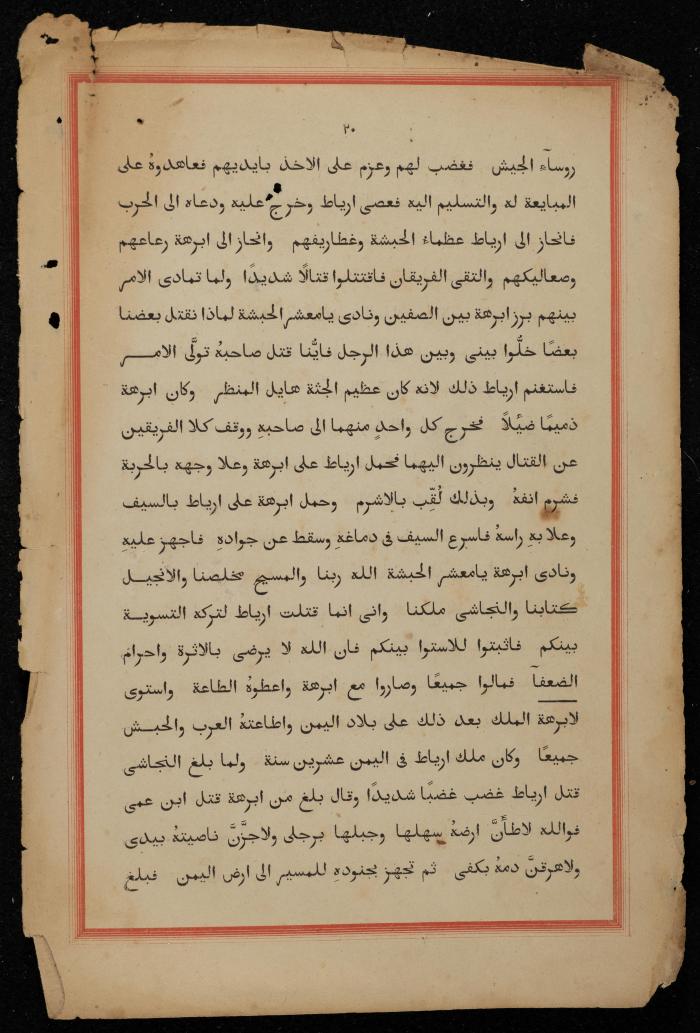 ٢٠
روسآء الجيش فغضب لهم وعزم على الاخذ بايديهم فعاهدوهُ على
المبايعة له والتسليم اليه فعصى ارياط وخرج عليه ودعاه الى الحرب
فانحاز الى ارياط عظماء الحبشة وغطاريفهم وانحاز الى ابرهة رعاعهم
وصعاليكهم والتقى الفريقان فاقتتلوا قتالًا شديدًا ولما تمادى الامر
بينهم برز ابرهة بين الصفين ونادى يامعشر الحبشة لماذا نقتل بعضنا
بعضًا خلُّوا بينى وبين هذا الرجل فايُّنا قتل صاحبهُ تولَّى الامر
فاستغنم ارياط ذلك لانه كان عظيم الجثة هايل المنظر وكان ابرهة
ذميمًا ضئيلًا فخرج كل واحدٍ منهما الى صاحبهِ ووقف كلا الفريقين
عن القتال ينظرون اليهما فحمل ارياط على ابرهة وعلا وجهه بالحربة
فشرم انفهُ وبذلك لُقِّب بالاشرم وحمل ابرهة على ارياط بالسيف
وعلا بهِ راسهُ فاسرع السيف فى دماغهِ وسقط عن جوادهِ فاجهز عليهِ
ونادى ابرهة يامعشر الحبشة الله ربنا والمسيح مخلصنا والانجيل
كتابنا والنجاشى ملكنا وانى انما قتلت ارياط لتركه التسوية
بينكم فاثبتوا للاستوا بينكم فان الله لا يرضى بالاثرة واحرام
الضعفآ فمالوا جميعًا وصاروا مع ابرهة واعطوهُ الطاعة واستوى
لابرهة الملك بعد ذلك على بلاد اليمن واطاعتهُ العرب والحبش
جميعًا وكان ملك ارياط فى اليمن عشرين سنة ولما بلغ النجاشى
قتل ارياط غضب غضبًا شديدًا وقال بلغ من ابرهة قتل ابن عمى
فوالله لاطأَنَّ ارضهُ سهلها وجبلها برجلى ولاجزَّنَّ ناصيتهُ بيدى
ولاهرقنَّ دمهُ بكفى ثم تجهز بجنودهِ للمسير الى ارض اليمن فبلغ